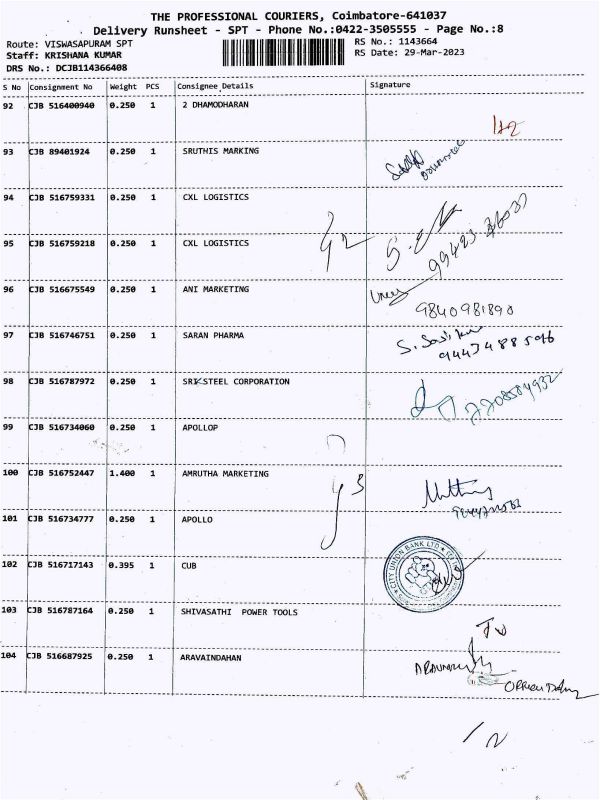 THE PROFESSIONAL COURIERS, Coimbatore-641037
Delivery Runsheet - SPT - Phone No.:0422-3505555 - Page No.:8
Route: VISWASAPURAM SPT
RS No.: 1143664
Staff: KRISHANA KUMAR
RS Date: 29-Mar-2023
DRS No.: DCJB114366408
S No Consignment No Weight PCS Consignee Details Signature
92 CJB 516400940 0.250 1 2 DHAMODHARAN
93 CJB 89401924 0.250 1 SRUTHIS MARKING
94 CJB 516759331 0.250 1 CXL LOGISTICS
95 CJB 516759218 0.250 1 CXL LOGISTICS
96 CJB 516675549 0.250 1 ANI MARKETING
9840981890
97 CJB 516746751 0.250 1 SARAN PHARMA
98 CJB 516787972 0.250 1 SRI STEEL CORPORATION
7708584932
99 CJB 516734060 0.250 1 APOLLOP
100 CJB 516752447 1.400 1 AMRUTHA MARKETING
101 CJB 516734777 0.250 1 APOLLO
102 CJB 516717143 0.395 1 CUB
CITY UNION BANK LTD
103 CJB 516787164 0.250 1 SHIVASATHI POWER TOOLS
104 CJB 516687925 0.250 1 ARAVAINDAHAN